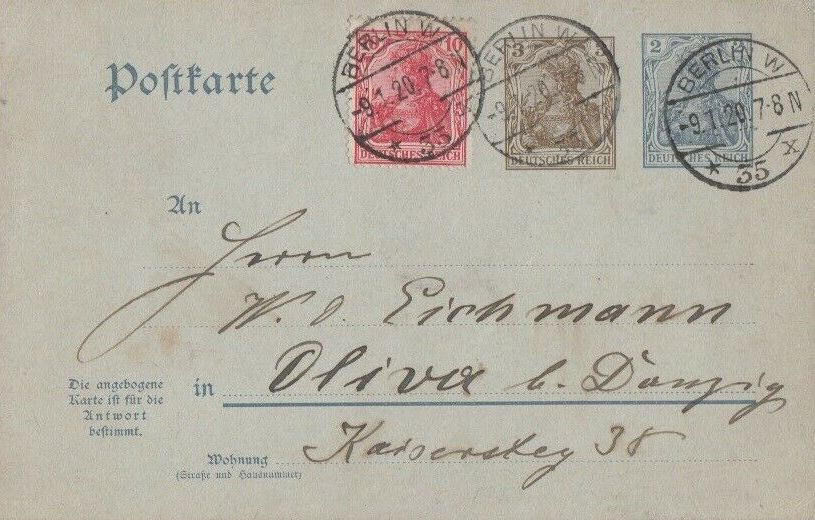 Postkarte
10
DEUTSCHES REICH
3 3
DEUTSCHES REICH
2
DEUTSCHES REICH
BERLIN W
-9.1.20.7-8
* 35
BERLIN W
* 35
BERLIN W
-9.1.20.7-8 N
* 35 x
An
Herrn
W. O. Eichmann
in Oliva b. Danzig
Die angebogene
Karte ist für die
Antwort
bestimmt.
Kaisersteg 38
Wohnung
(Straße und Hausnummer)